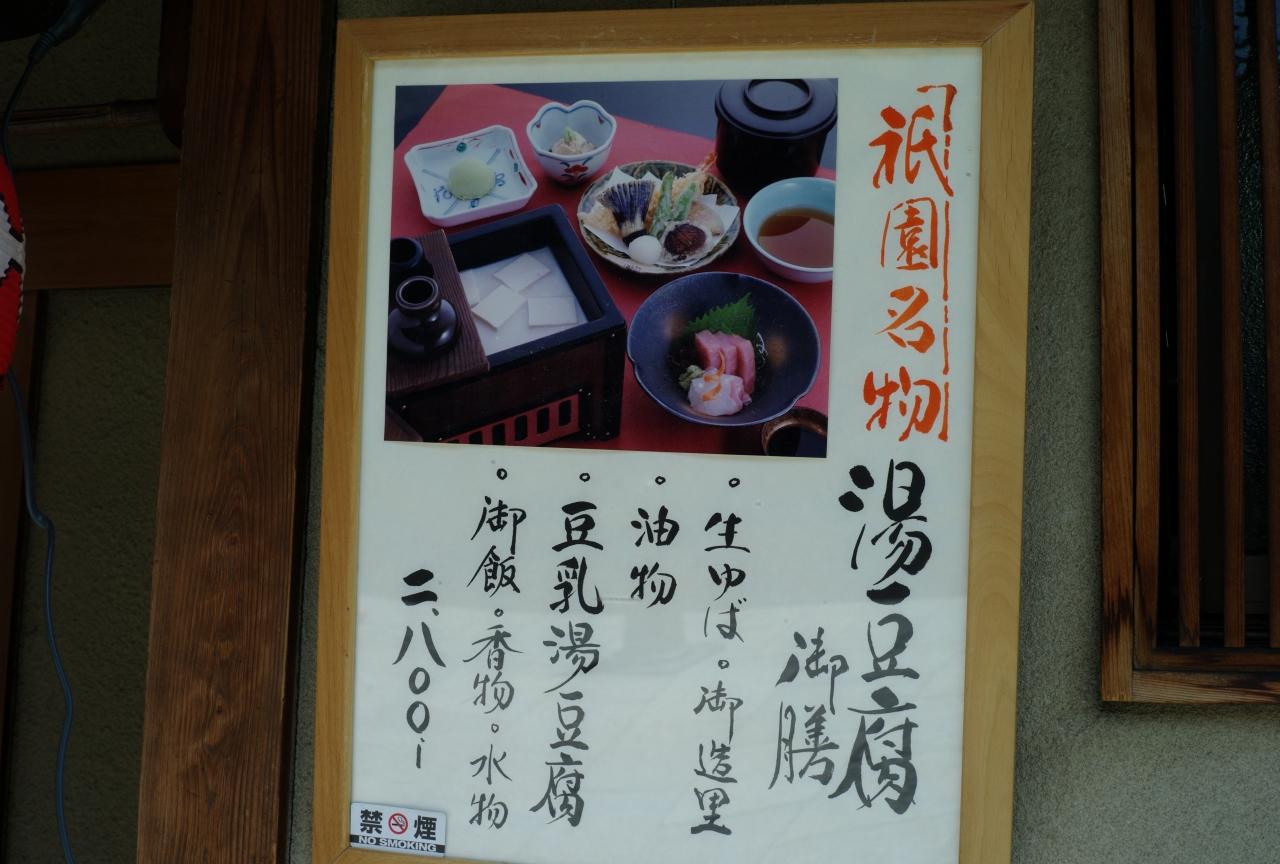 祇園名物
湯豆腐
御膳
。生ゆば。御造里
。油物
。豆乳湯豆腐
。御飯。香物。水物
二、八〇〇i
禁煙
NO SMOKING